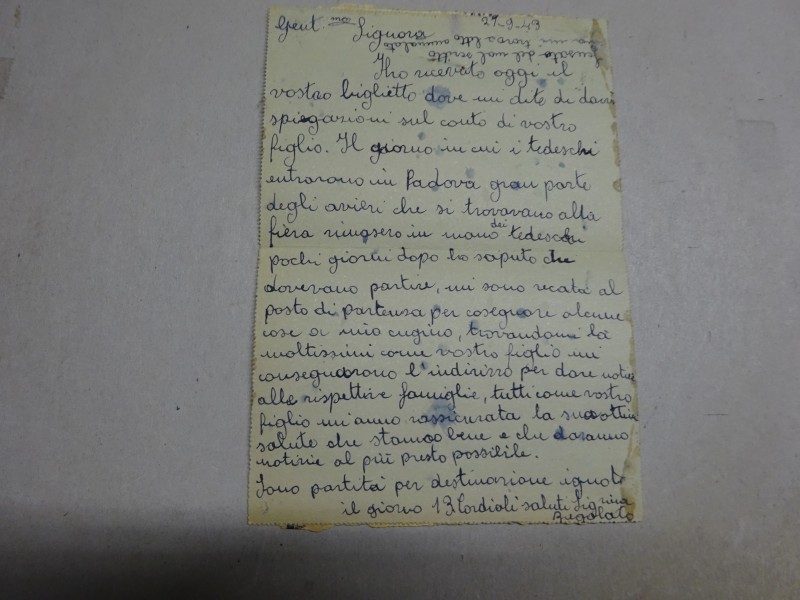 Gent.ma Signora 27-9-43
Scusate del mal scritto
ma mi trovo letto ammalata
Ho ricevuto oggi il
vostro biglietto dove mi dite di darvi
spiegazioni sul conto di vostro
figlio. Il giorno in cui i tedeschi
entrarono in Padova gran parte
degli avieri che si trovavano alla
fiera rimasero in mano dei tedeschi
pochi giorni dopo ho saputo che
dovevano partire, mi sono recata al
posto di partensa per cosegnare alcune
cose a mio cugino, trovandomi là
moltissimi come vostro figlio mi
consegnarono l'indirizzo per dare notizie
alle rispettive famiglie, tutti come vostro
figlio mi anno rassicurata la sua ottima
salute che stanno bene e che daranno
notizie al più presto possibile.
Sono partiti per destinazione ignota
il giorno 13 Cordiali saluti Signora